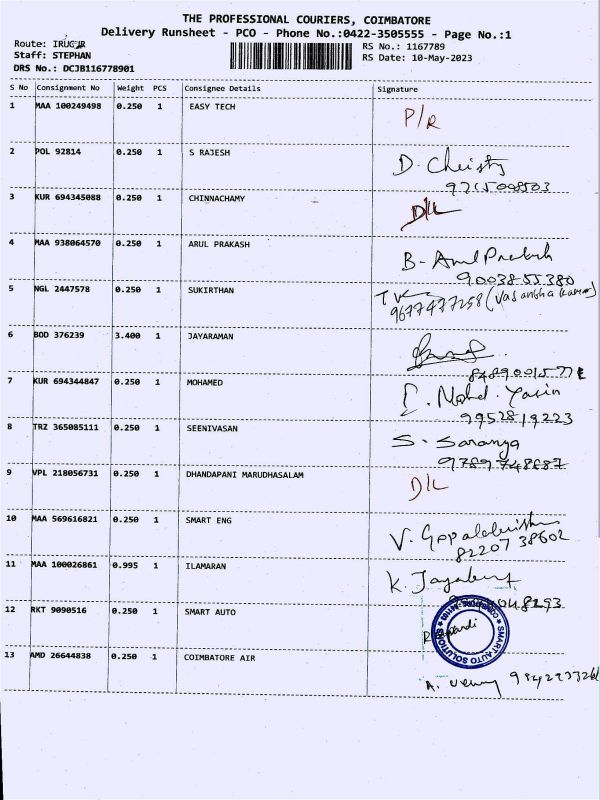 THE PROFESSIONAL COURIERS, COIMBATORE
Delivery Runsheet - PCO - Phone No.:0422-3505555 - Page No.:1
Route: IRUGUR
RS No.: 1167789
Staff: STEPHAN
RS Date: 10-May-2023
DRS No.: DCJB116778901
S No Consignment No Weight PCS Consignee Details Signature
1 MAA 100249498 0.250 1 EASY TECH P/R
2 POL 92814 0.250 1 S RAJESH D. Christy
9715008503
3 KUR 694345088 0.250 1 CHINNACHAMY D/L
4 MAA 938064570 0.250 1 ARUL PRAKASH B. Arul Prakash
9003855380
5 NGL 2447578 0.250 1 SUKIRTHAN
9677477258
6 BOD 376239 3.400 1 JAYARAMAN
7 KUR 694344847 0.250 1 MOHAMED Mohd. Yasin
9952819223
8 TRZ 365085111 0.250 1 SEENIVASAN S. Saranya
9789748687
9 VPL 218056731 0.250 1 DHANDAPANI MARUDHASALAM D/L
10 MAA 569616821 0.250 1 SMART ENG V. Gopalakrishnan
82207 38602
11 MAA 100026861 0.995 1 ILAMARAN K.
12 RKT 9090516 0.250 1 SMART AUTO
SMART AUTO SOLUTIONS
13 AMD 26644838 0.250 1 COIMBATORE AIR